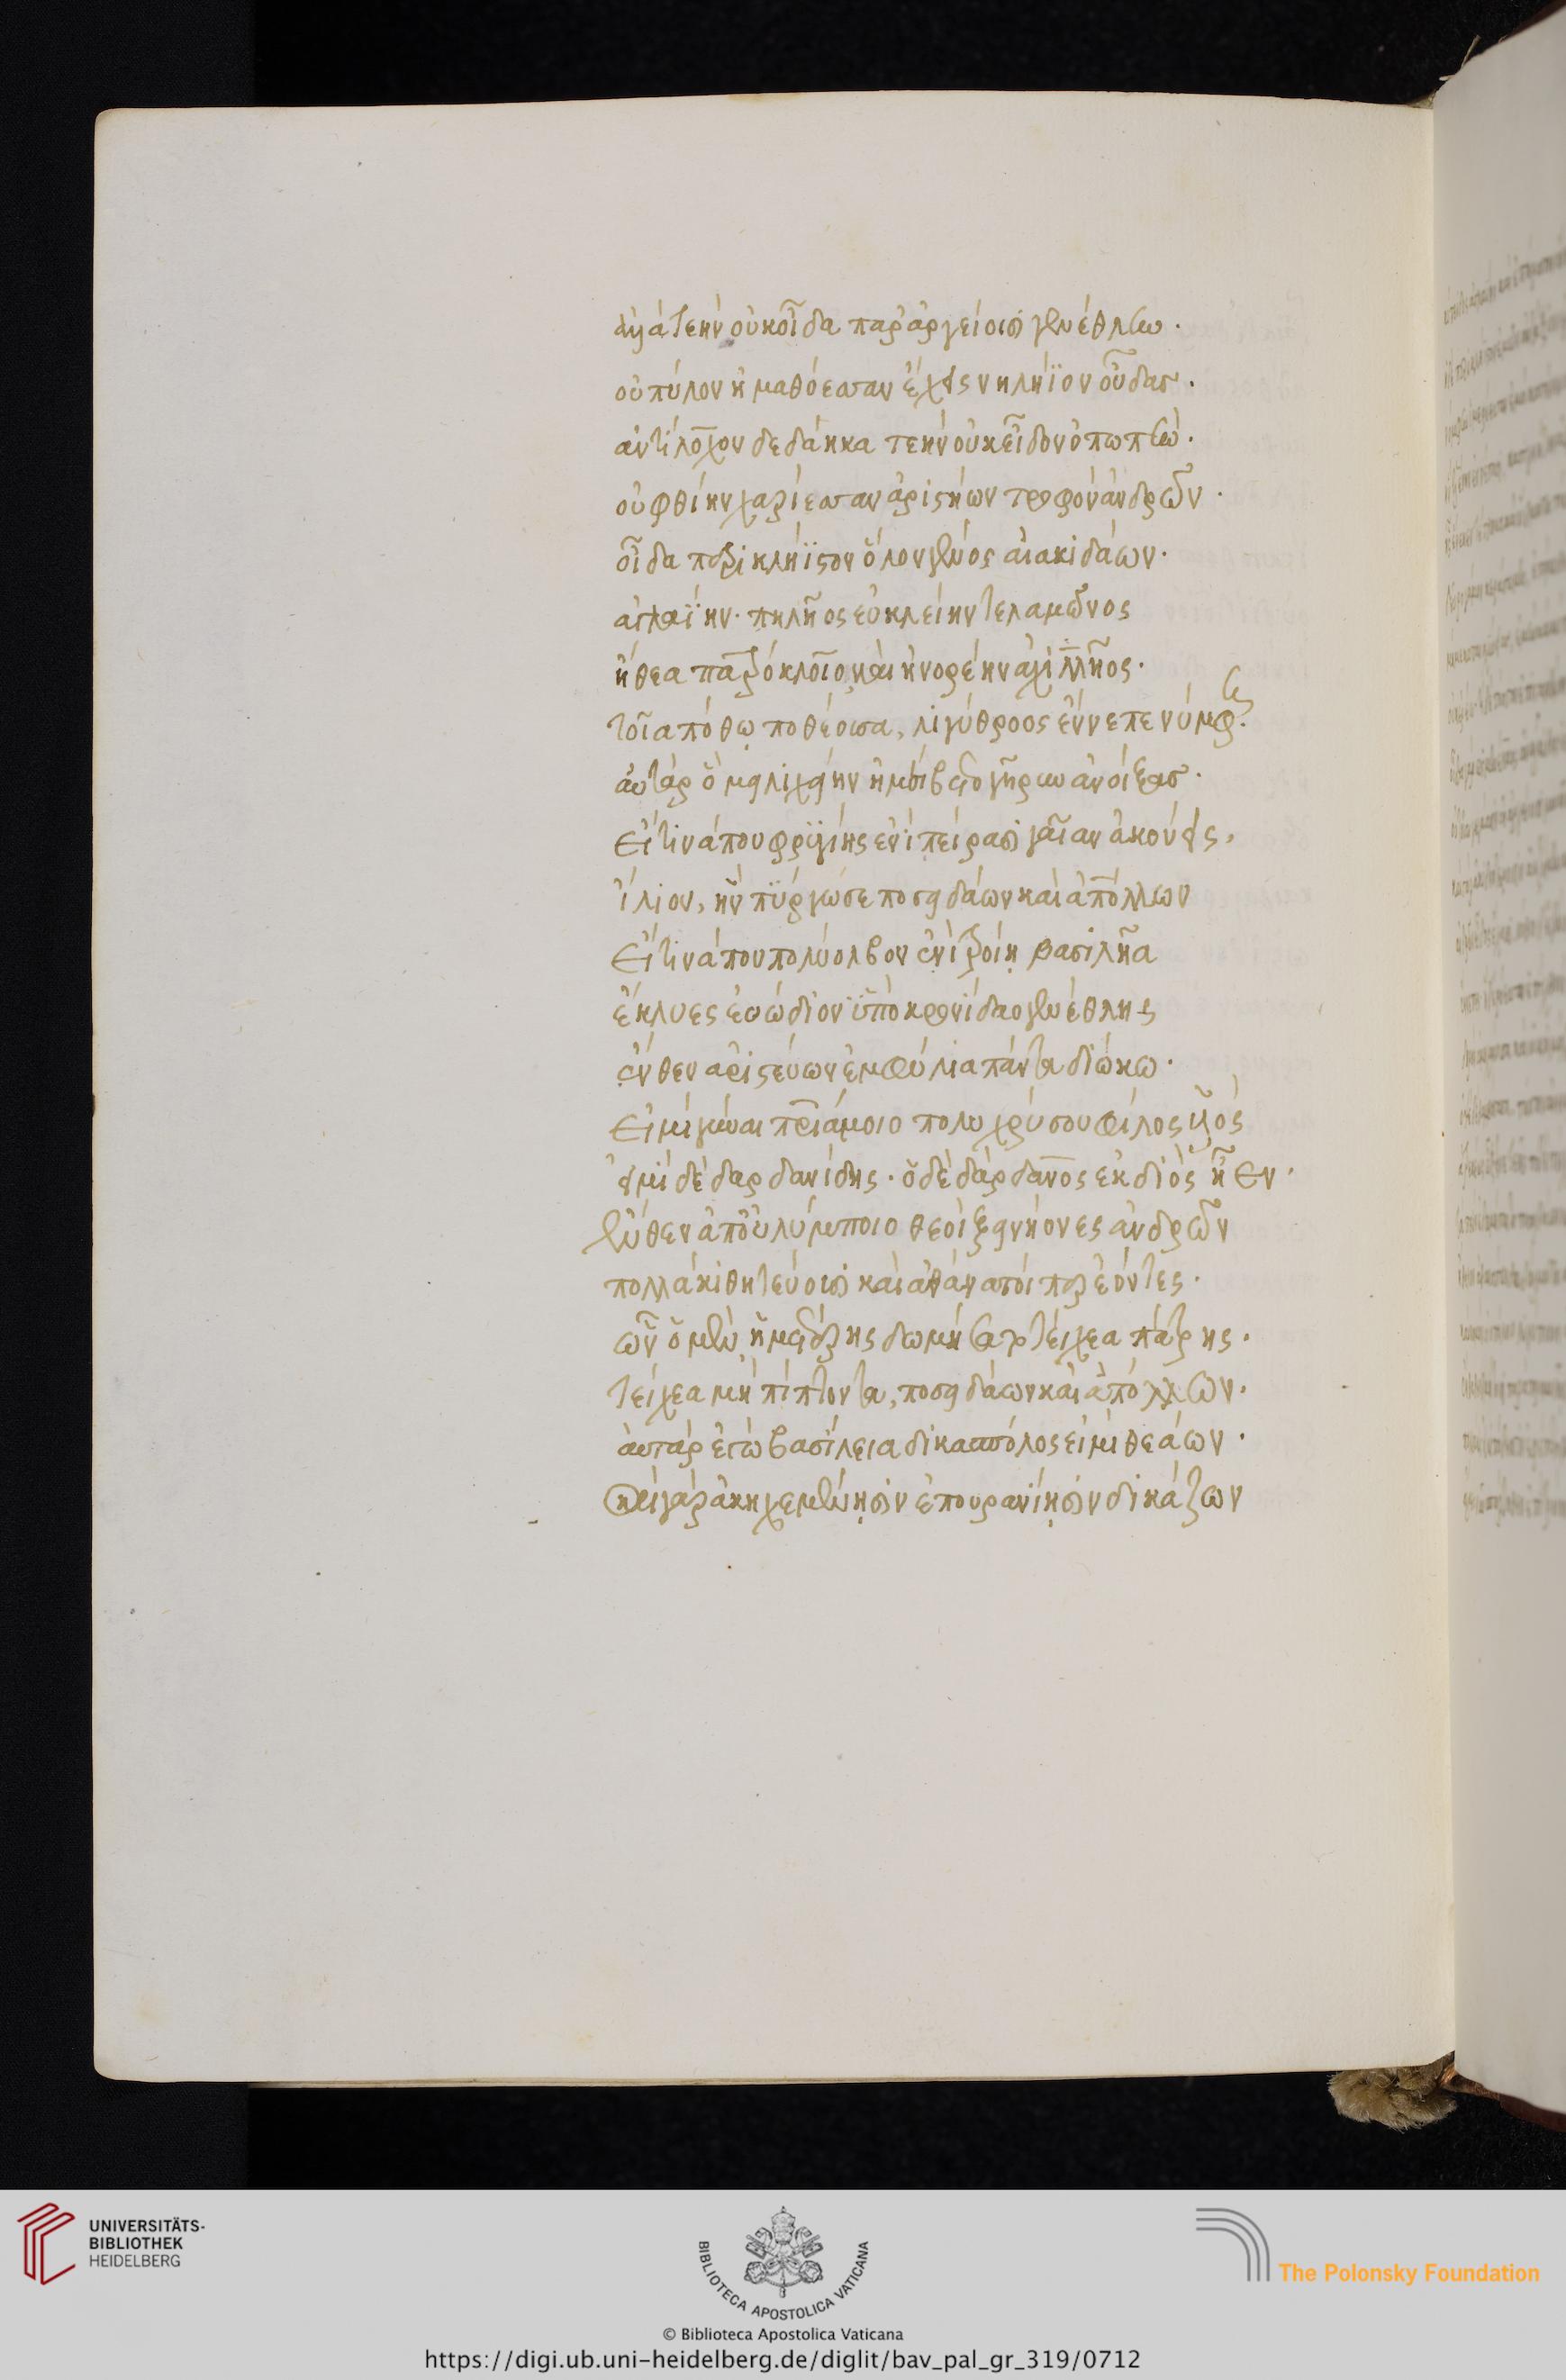 ἀλλὰ τεὴν οὐκ οἶδα παρ' ἀργείοισι γενέθλην.
οὐ πύλον ἠμαθόεσσαν ἔχεις νηλήϊον οὖδας.
ἀντίλοχον δεδάηκα τεὴν οὐκ εἶδον ὀπωπήν.
οὐ φθίην χαρίεσσαν ἀριστήων τροφὸν ἀνδρῶν.
οἶδα περικλήϊστον ὅλον γένος αἰακιδάων.
ἀγλαΐην. πηλῆος ἐυκλείην τελαμῶνος
ἤθεα πατρόκλοιο καὶ ἠνορέην ἀχιλλῆος.
τοῖα πόθῳ ποθέουσα, λιγύθροος ἔννεπε νύμφη.
αὐτὰρ ὁ μειλιχίην ἠμείβετο γῆρυν ἀνοίξας.
εἴ τινά που φρυγίης ἐνὶ πείρασι γαῖαν ἀκούεις,
ἴλιον, ἣν πύργωσε ποσειδάων καὶ ἀπόλλων
εἴ τινά που πολύολβον ἐνὶ τροίῃ βασιλῆα
ἔκλυες εὐώδιον ὑπὸ κρονίδαο γενέθλης
ἔνθεν ἀριστεύων ἐμφύλια πάντα διώκω.
εἰμὶ γύναι πριάμοιο πολυχρύσου φίλος υἱός
εἰμὶ δὲ δαρδανίδης. ὁ δὲ δάρδανος ἐκ διὸς ἦεν.
ἔνθεν ἀπ' οὐλύμποιο θεοὶ ξεινήονες ἀνδρῶν
πολλάκι θητεύουσι καὶ ἀθάνατοί περ ἐόντες.
ὧν ὁ μὲν ἡμετέρης δωμήσατο τείχεα πάτρης.
τείχεα μὴ πίπτοντα, ποσειδάων καὶ ἀπόλλων.
αὐτὰρ ἐγὼ βασίλεια δικασπόλος εἰμὶ θεάων.
καὶ γὰρ ἀκηχεμένῃσιν ἐπουρανίῃσιν δικάζων
UNIVERSITÄTS-
BIBLIOTHEK
HEIDELBERG
BIBLIOTECA APOSTOLICA VATICANA
The Polonsky Foundation
© Biblioteca Apostolica Vaticana
https://digi.ub.uni-heidelberg.de/diglit/bav_pal_gr_319/0712